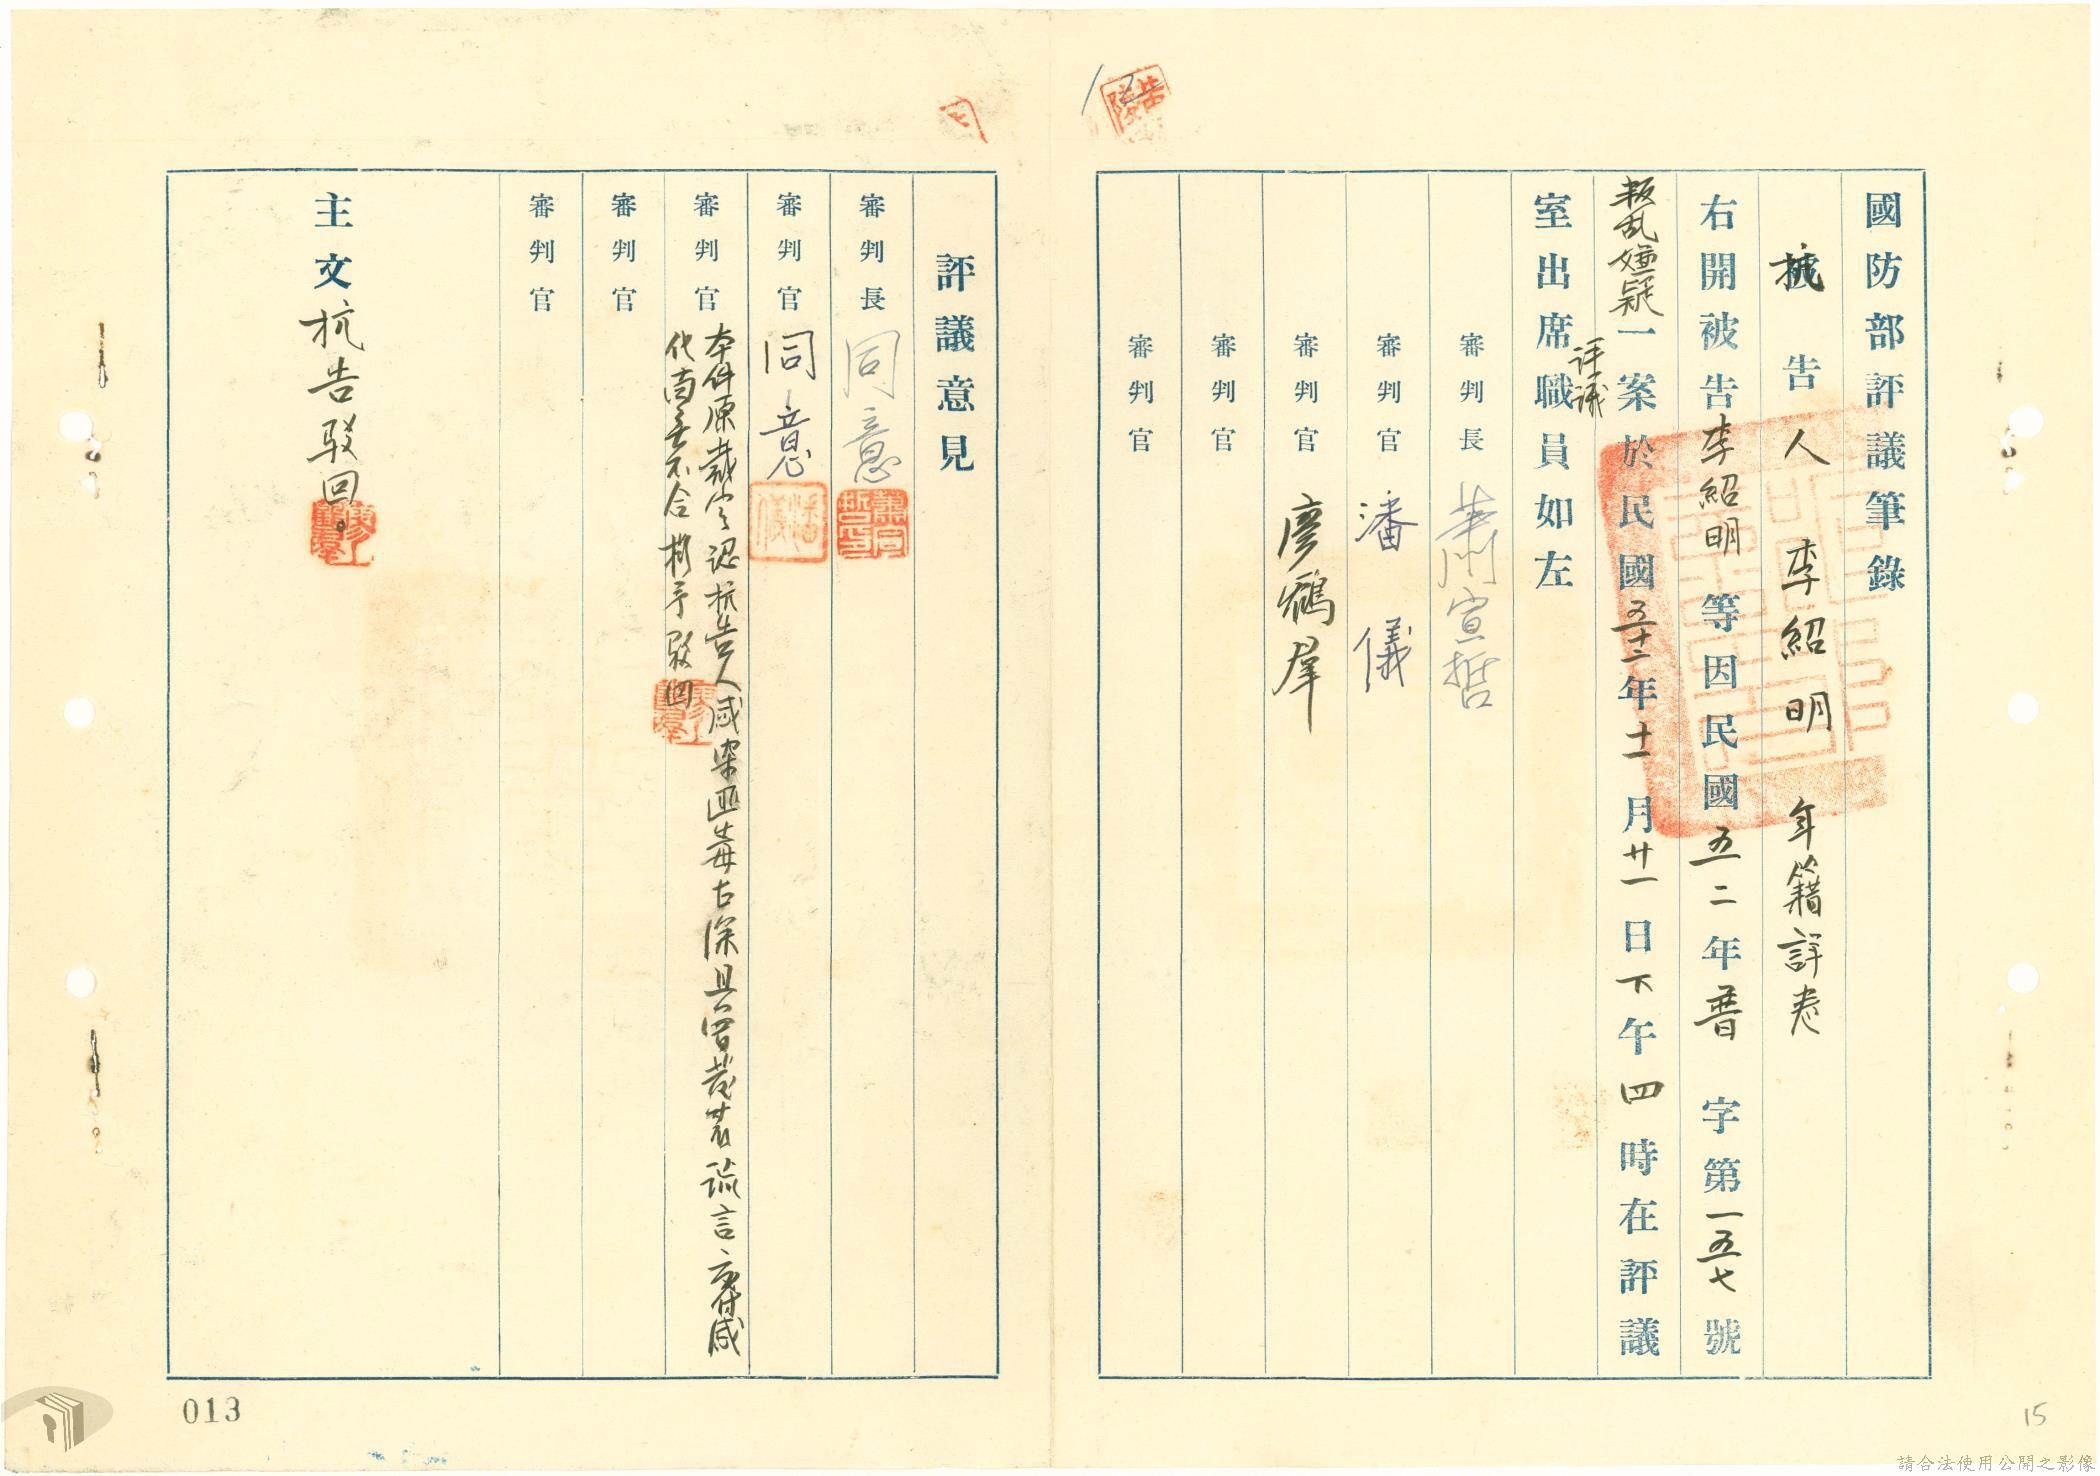 國防部評議筆錄
抗告人李紹明 年籍詳卷
右開被告李紹明等因民國五二年晉字第一五七號
叛乱嫌疑一案於民國五十二年十一月廿一日下午四時在評議
評議
室出席職員如左
審判長 蕭宣哲
審判官 潘儀
審判官 廖鵷羣
審判官
審判官
評議意見
審判長 同意
審判官 同意
審判官 本件原裁定認抗告人感染匪毒古深且曾散佈謊言交付感
化尚無不合擬予駁回
審判官
審判官
主文 抗告駁回。
013
15
請合法使用公開之影像